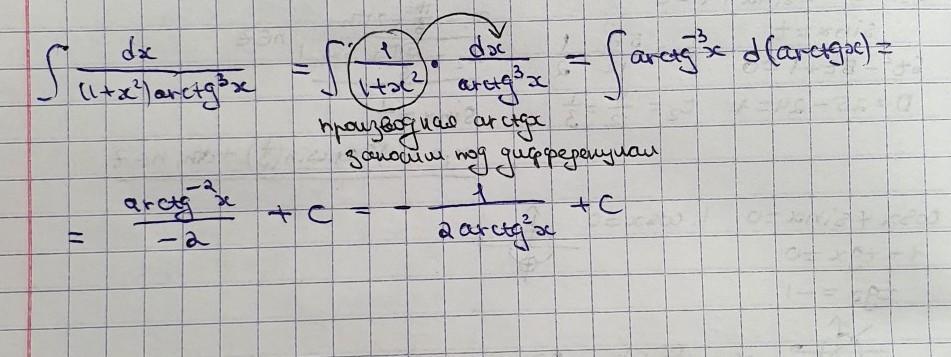 ∫ dx / ((1+x²)arctg³x) = ∫ 1/(1+x²) · dx/arctg³x = ∫ arctg⁻³x d(arctgx) =
производная arctgx
заносим под дифференциал
= arctg⁻²x / -2 + C = - 1 / 2arctg²x + C